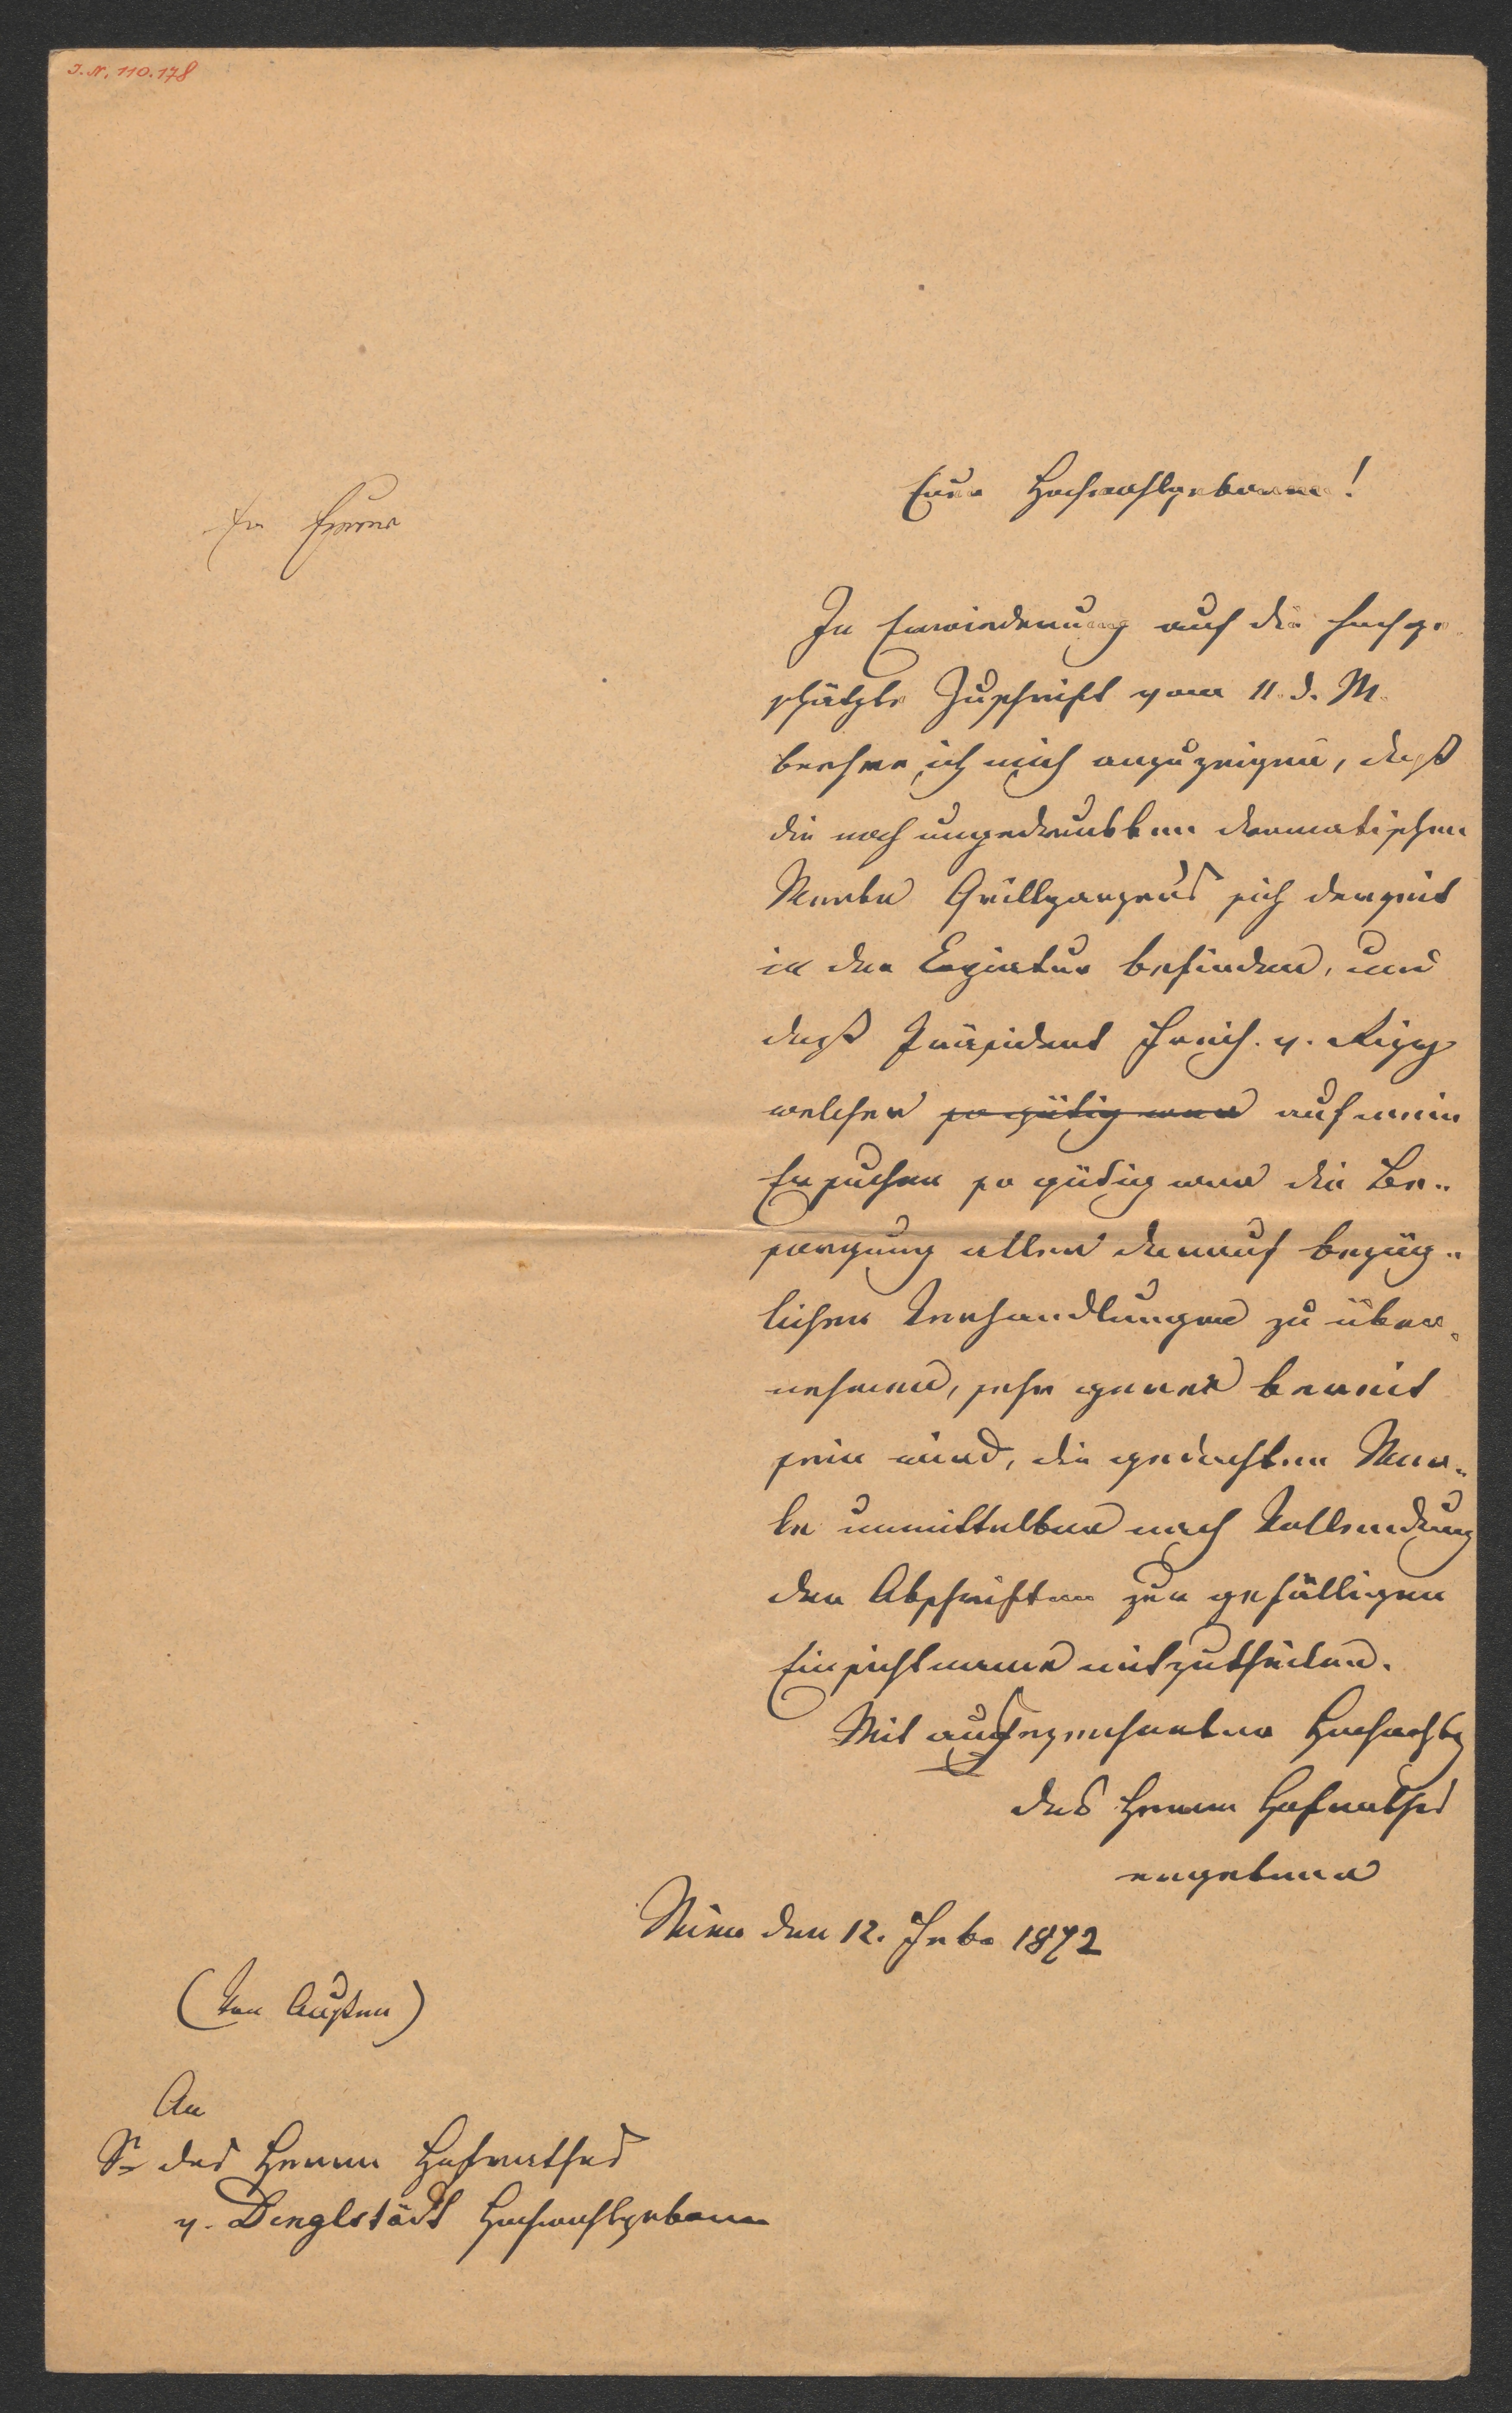 I. N. 110.178
Euer Hochwohlgeboren!
In Erwiederung auf die hochge-
schätzte Zuschrift vom 11. d. M.
beehre ich mich anzuzeigen, daß
die noch ungedruckten dramatischen
Werke Grillparzers sich derzeit
in der Copiatur befinden, und
daß Präsident Freih. v. Rizy
welcher so gütig war auf mein
Ersuchen so gütig war die Be-
sorgung aller darauf bezüg-
lichen Verhandlungen zu über-
nehmen, sehr gerne bereit
sein wird, die gedachten Wer-
ke unmittelbar nach Vollendung
der Abschriften zur gefälligen
Einsichtname mitzutheilen.
Mit ausgezeichneter Hochachtg
des Herrn Hofrathes
ergebene
Wien den 12. Feb. 1872
(Von Außen)
An
Sr des Herrn Hofrathes
v. Dinglstädt Hochwohlgeborn